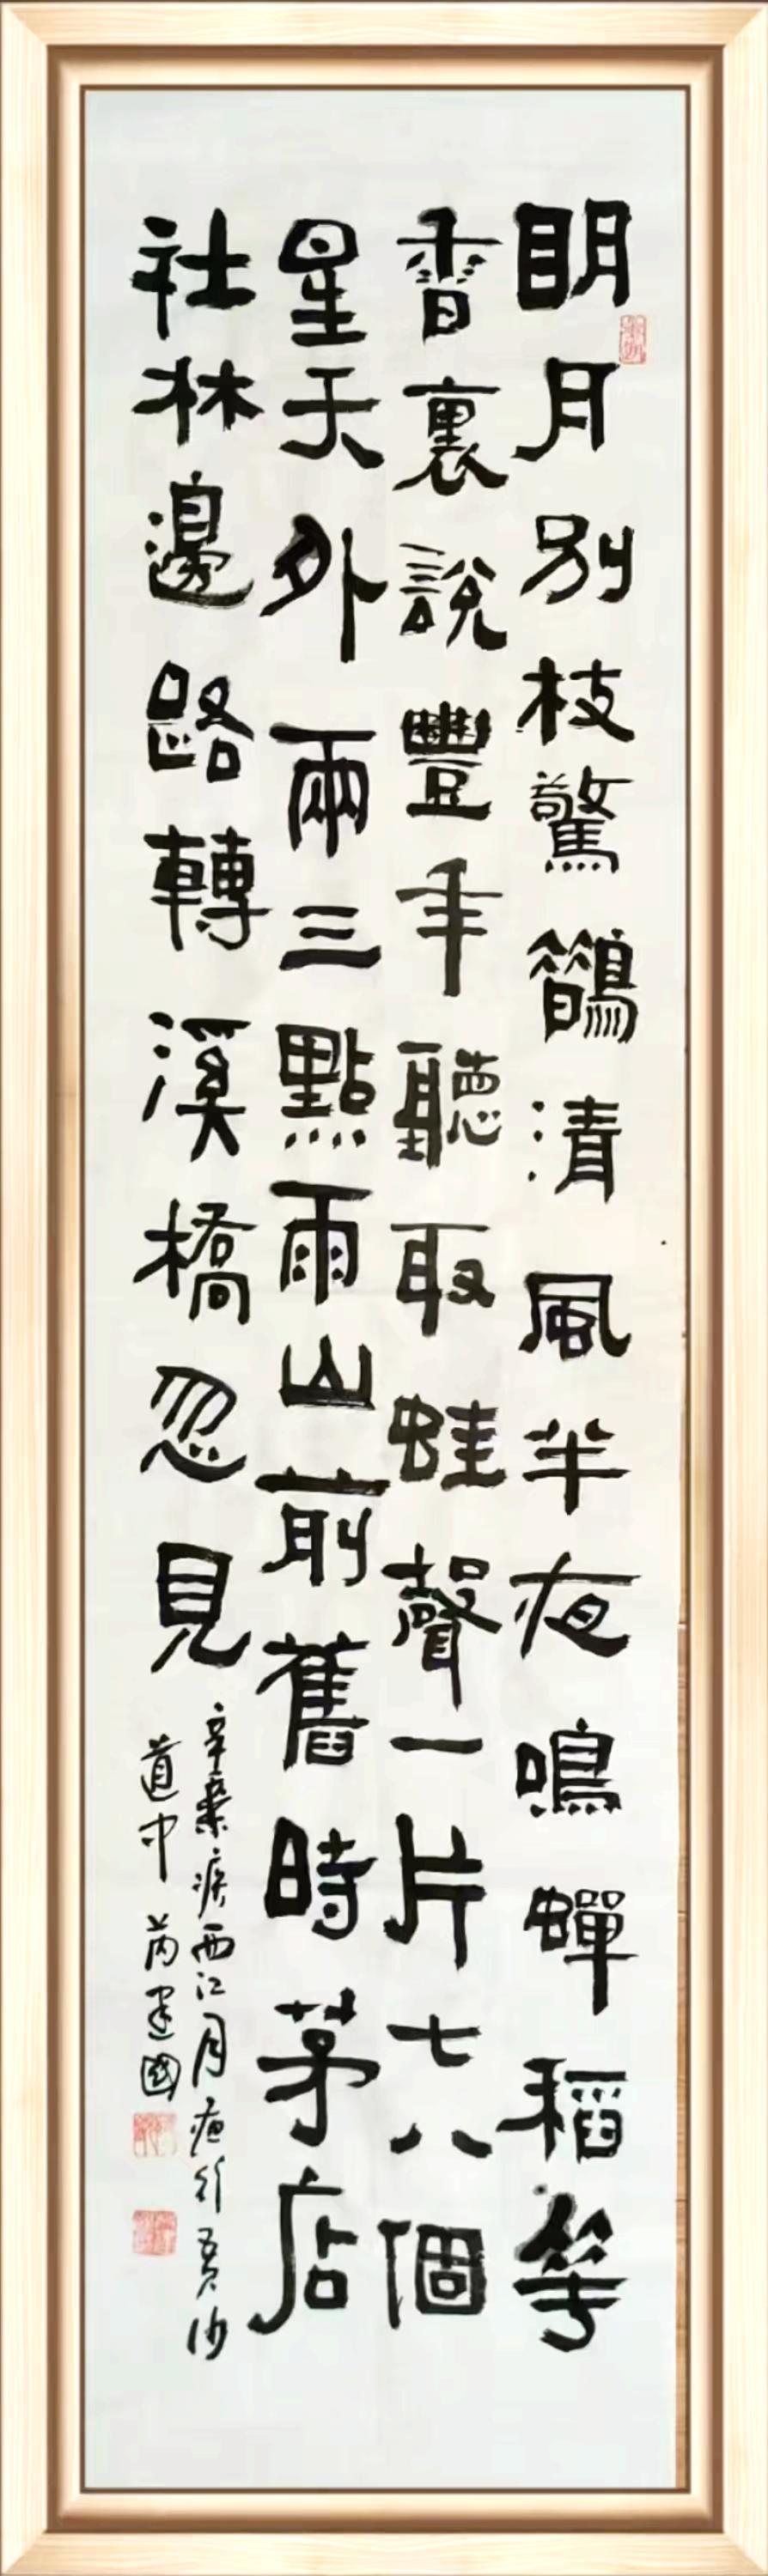 明月別枝驚鵲清風半夜鳴蟬稻花
香裏說豐年聽取蛙聲一片七八個
星天外兩三點雨山前舊時茅店
社林邊路轉溪橋忽見
辛棄疾西江月夜行黃沙
道中 芮建國